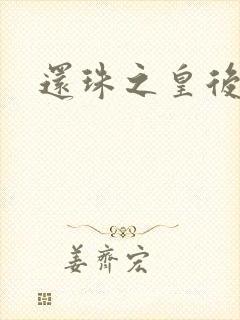 還珠之皇後
姜齊宏